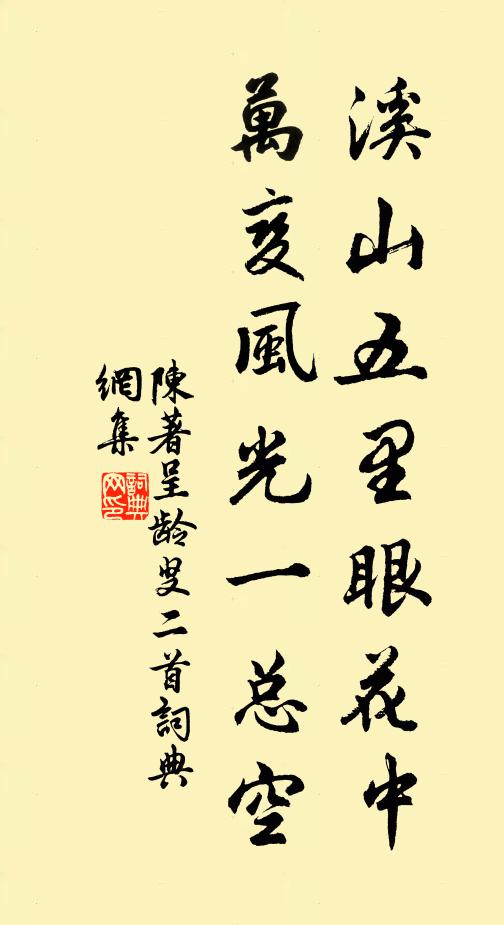 溪山五里眼花中
萬変風光一总空
陳著呈龄叟二首詞典
網集
詞典
网印